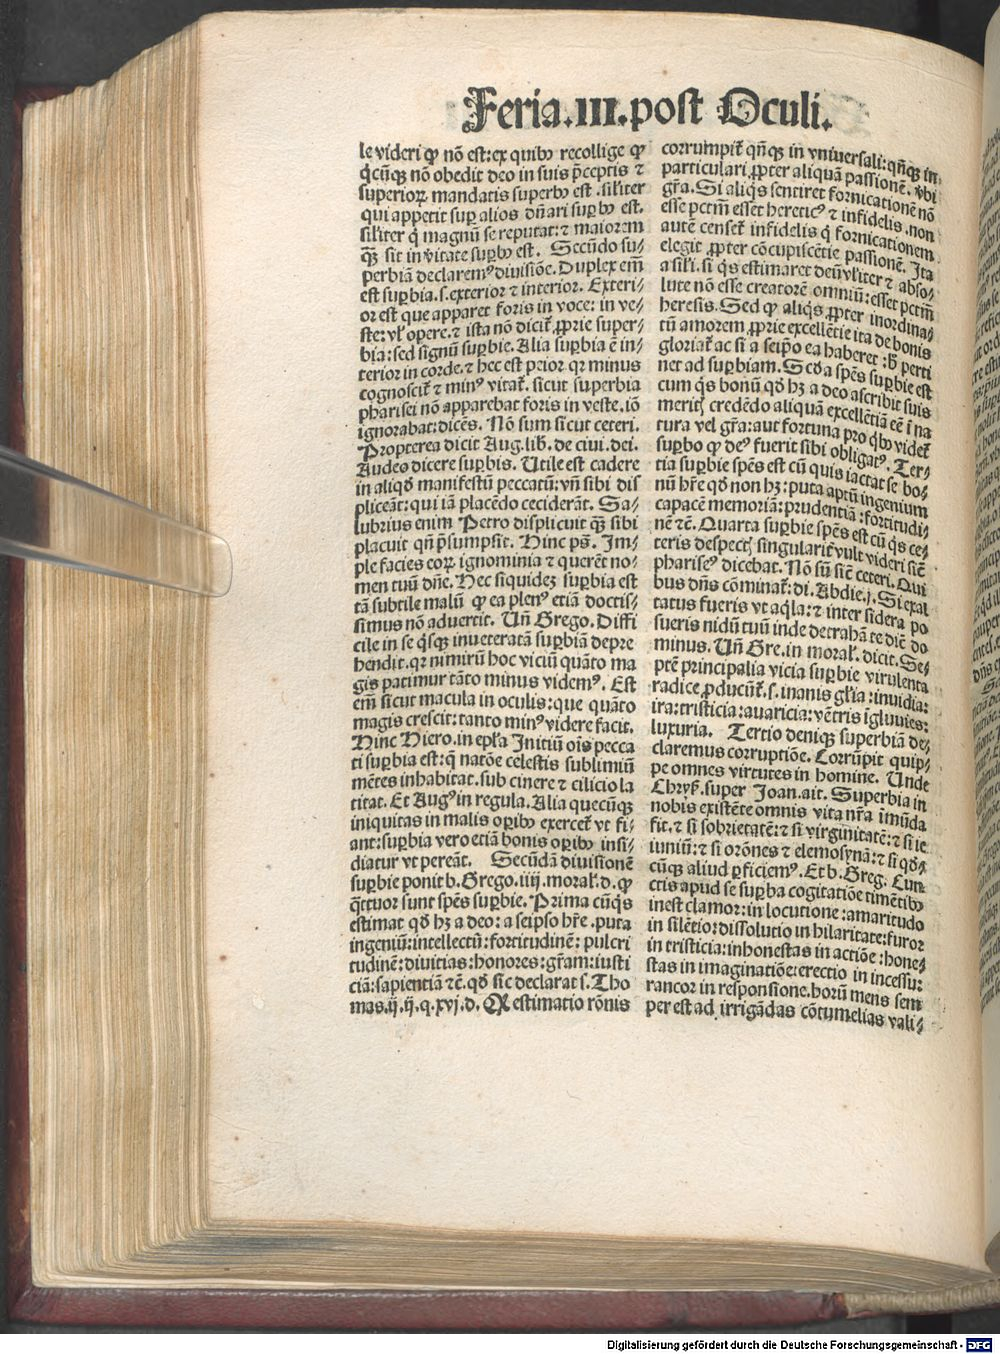 Feria.III.post Oculi.
le videri qꝫ nō est: ex quibꝰ recollige qꝫ
q̇cūqꝫ nō obedit deo in suis p̄ceptis ⁊
superioꝝ mandatis superbꝰ est .sil'iter
qui appetit suꝑ alios dn̄ari suꝑbꝰ est.
sil'iter q̇ magnū se reputat: ⁊ maiorem
qꝫ̄ sit in v̓itate suꝑbꝰ est. Secūdo su⸗
perbiā declaremꝰ divisiōe. Duplex em̄
est suꝑbia .s. exterior ⁊ interior. Exteri⸗
or est que apparet foris in voce: in ve⸗
ste: vl' opere. ⁊ ista nō dicit᷑ ꝓprie super⸗
bia: sed signū suꝑbie. Alia suꝑbia ē in⸗
terior in corde. ⁊ hec est peior qꝛ minus
cognoscit᷑ ⁊ minꝰ vitat᷑. sicut superbia
pharisei nō apparebat foris in veste. iō
ignorabat: dicēs. Nō sum sicut ceteri.
Propterea dicit Aug. lib̓. de ciui. dei.
Audeo dicere suꝑbis. Utile est cadere
in aliqd̓ manifestū peccatū: vn̄ sibi dis
pliceāt: qui iā placēdo ceciderāt. Sa⸗
lubrius enim Petro displicuit qꝫ̄ sibi
placuit qn̄ p̄sumpsit. Hinc ps̄. Im⸗
ple facies eoꝝ ignominia ⁊ querēt no⸗
men tuū dn̄e. Hec siquideꝫ suꝑbia est
tā subtile malū qꝫ ea plenꝰ etiā doctis⸗
simus nō aduertit. Un̄ Grego. Diffi
cile in se q̇sqꝫ inueteratā suꝑbiā depre
hendit. qꝛ nimirū hoc viciū quāto ma
gis patimur tāto minus videmꝰ. Est
em̄ sicut macula in oculis: que quāto
magis crescit: tanto minꝰ videre facit.
Hinc Hiero. in epl'a Initiū oīs pecca
ti suꝑbia est: q̄ natōe celestis sublimiū
mētes inhabitat. sub cinere ⁊ cilicio la
titat. Et Augꝰ in regula. Alia quecūqꝫ
iniquitas in malis oꝑibꝰ exercet᷑ vt fi⸗
ant: suꝑbia vero etiā bonis oꝑibꝰ insi⸗
diatur vt pereāt. Secūdā diuisionē
suꝑbie ponit b. Grego. iiij. moral'. d. qꝫ
q̄ttuor sunt spēs suꝑbie. Prima cū q̇s
estimat qd̓ hꝫ a deo: a seipso hr̄e. puta
ingeniū: intellectū: fortitudinē: pulcri
tudinē: diuitias: honores: gr̄am: iusti
ciā: sapientiā ⁊c̄. qd̓ sic declarat s. Tho
mas. ij. ij. q. xvj. d. Qꝫ estimatio rōnis
corrumpit᷑ qn̄qꝫ in vniuersali: qn̄qꝫ in⸗
particulari ꝓpter aliquā passionē. vbi
gr̄a. Si aliq̇s sentiret fornicationē nō
esse pctm̄ esset hereticꝰ ⁊ infidelis. non
autē censet᷑ infidelis q̇ fornicationem
elegit ꝓpter cōcupiscētie passionē. Ita
a sil'i. si q̇s estimaret deū vl'iter ⁊ abso⸗
lute nō esse creatorē omniū: esset pctm̄
heresis. Sed qꝫ aliq̇s ꝓpter inordina⸗
tū amorem ꝓprie excellētie ita de bonis
gloriat᷑ ac si a seip̄o ea haberet: h̓ perti
net ad suꝑbiam. Scd̓a spēs suꝑbie est
cum q̇s bonū qd̓ hꝫ a deo ascribit suis
meritꝭ credēdo aliquā excellētiā eē ī na
tura vel gr̄a: aut fortuna pro q̇bꝰ videt᷑
suꝑbo qꝫ deꝰ fuerit sibi obligatꝰ. Ter⸗
tia suꝑbie spēs est cū quis iactat se bo⸗
nū hr̄e qd̓ non hꝫ: puta aptū ingenium
capacē memoriā: prudentiā: fortitudi⸗
nē ⁊c̄. Quarta suꝑbie spēs est cū q̇s ce⸗
teris despectꝭ singularit᷑ vult videri sic̄
phariseꝰ dicebat. Nō sū sic̄ ceteri. Qui
bus dn̄s cōminat᷑: di. Abdie. j. Si exal
tatus fueris vt aq̇la: ⁊ inter sidera po
sueris nidū tuū inde detrahā te dic̄ do
minus. Un̄ Gre. in moral'. dicit. Se⸗
ptē principalia vicia suꝑbie virulenta
radice ꝓducūt᷑. s. inanis gl'ia: inuidia:
ira: tristicia: auaricia: vētris īgluuies:
luxuria. Tertio denique superbiā de⸗
claremus corruptiōe. Corrūpit quip⸗
pe omnes virtutes in homine. Unde
Chrys̓. super Joan. ait. Superbia in
nobis existēte omnis vita nr̄a īmūda
fit. ⁊ si sobrietatē: ⁊ si virginitatē: ⁊ si ie
iuniū: ⁊ si orōnes ⁊ elemosynā: ⁊ si qd̓⸗
cūqꝫ aliud ꝑficiemꝰ. Et b. Greg. Cun⸗
ctis apud se suꝑba cogitatiōe timētibꝰ
inest clamor: in locutione: amaritudo
in silētio: dissolutio in hilaritate: furor
in tristicia: inhonestas in actiōe: hone⸗
stas in imaginatiōe: erectio in incessu:
rancor in responsione. horū mens sem
per est ad irrigādas cōtumelias vali⸗
Digitalisierung gefördert durch die Deutsche Forschungsgemeinschaft - DFG